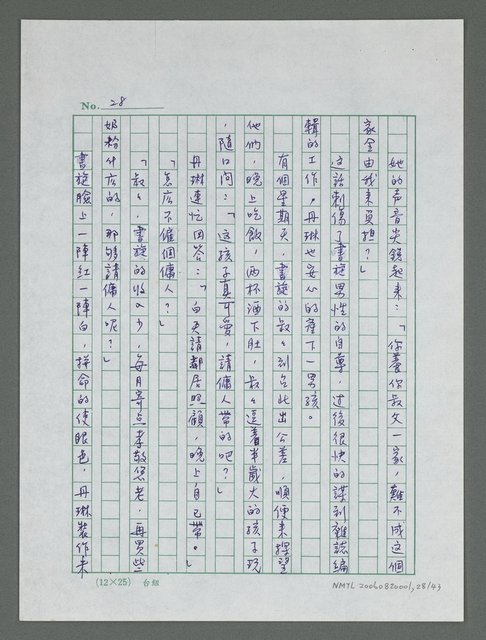 No. 28
她的声音尖銳起來：「你養你叔父一家，難不成這個
家全由我來負担？」
這話刺傷了書旋男性的自尊，這後很快的謀到雜誌編
輯的工作，丹琳也安心的產下一男孩。
有個星期天，書旋的叔々到台北出公差，順便來探望
他們，晚上吃飯，両杯酒下肚，叔々逗着半歲大的孩子玩
，隨口問：「這孩子真可愛，請傭人帶的吧？」
丹琳連忙回答：「白天請鄰居照顧，晚上自己帶。」
「怎広不僱個傭人？」
「叔々，書旋的收入少，每月寄点孝敬您老，再買些
奶粉什広的，那够請傭人呢？」
書旋臉上一陣紅一陣白，拼命的使眼色，丹琳裝作未
(12×25) 台組
NMTL 20060820001, 28/43